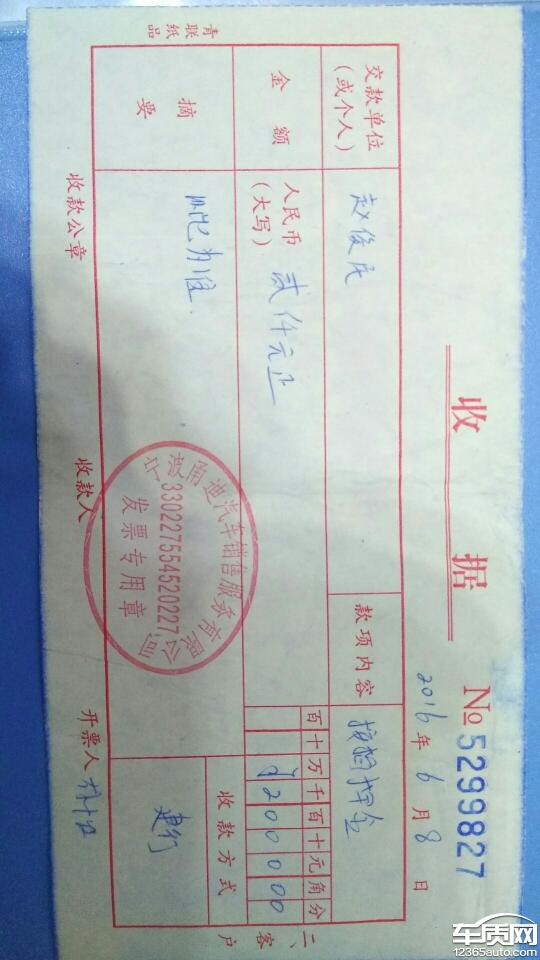 收据
№ 5299827
2016年6月8日
交款单位
（或个人）
赵俊
款项内容
按揭押金
金额
人民币
（大写）
贰仟元正
百十万千百十元角分
¥200000
摘要
为准.
收款方式
建行
收款公章
收款人
开票人
二、客户
青联纸品
甬迪汽车销售服务有限公司
330227554520227
发票专用章
车质网
12365auto.com